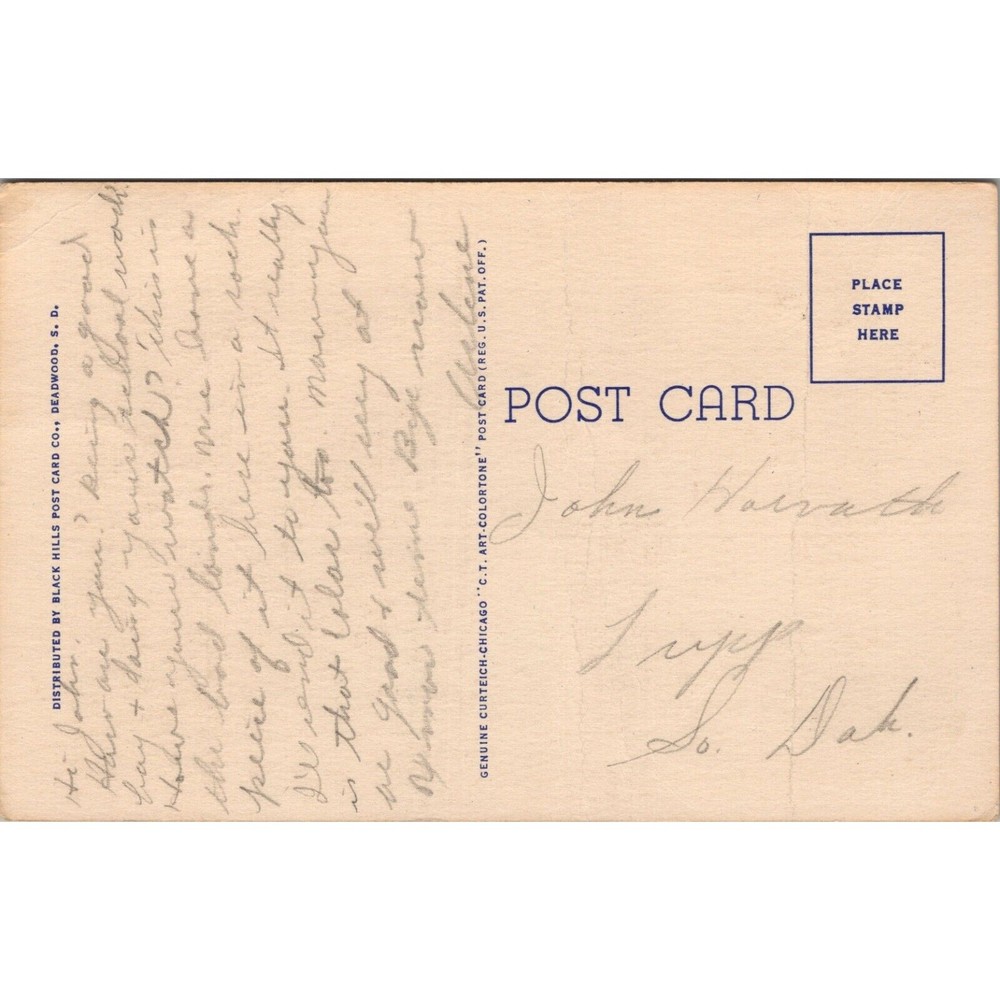 DISTRIBUTED BY BLACK HILLS POST CARD CO., DEADWOOD, S. D.
Hi John.
How are you? Being a good
boy & doing your school work.
Have you watch? this is
the bad lands. we have a
peice of it here in a rock.
I'll send it to you. It really
is that color too. Now you
be good & will
now Bye now
GENUINE CURTEICH-CHICAGO "C.T. ART-COLORTONE" POST CARD (REG. U.S. PAT. OFF.)
POST CARD
PLACE
STAMP
HERE
John Horvath
Tripp
So. Dak.